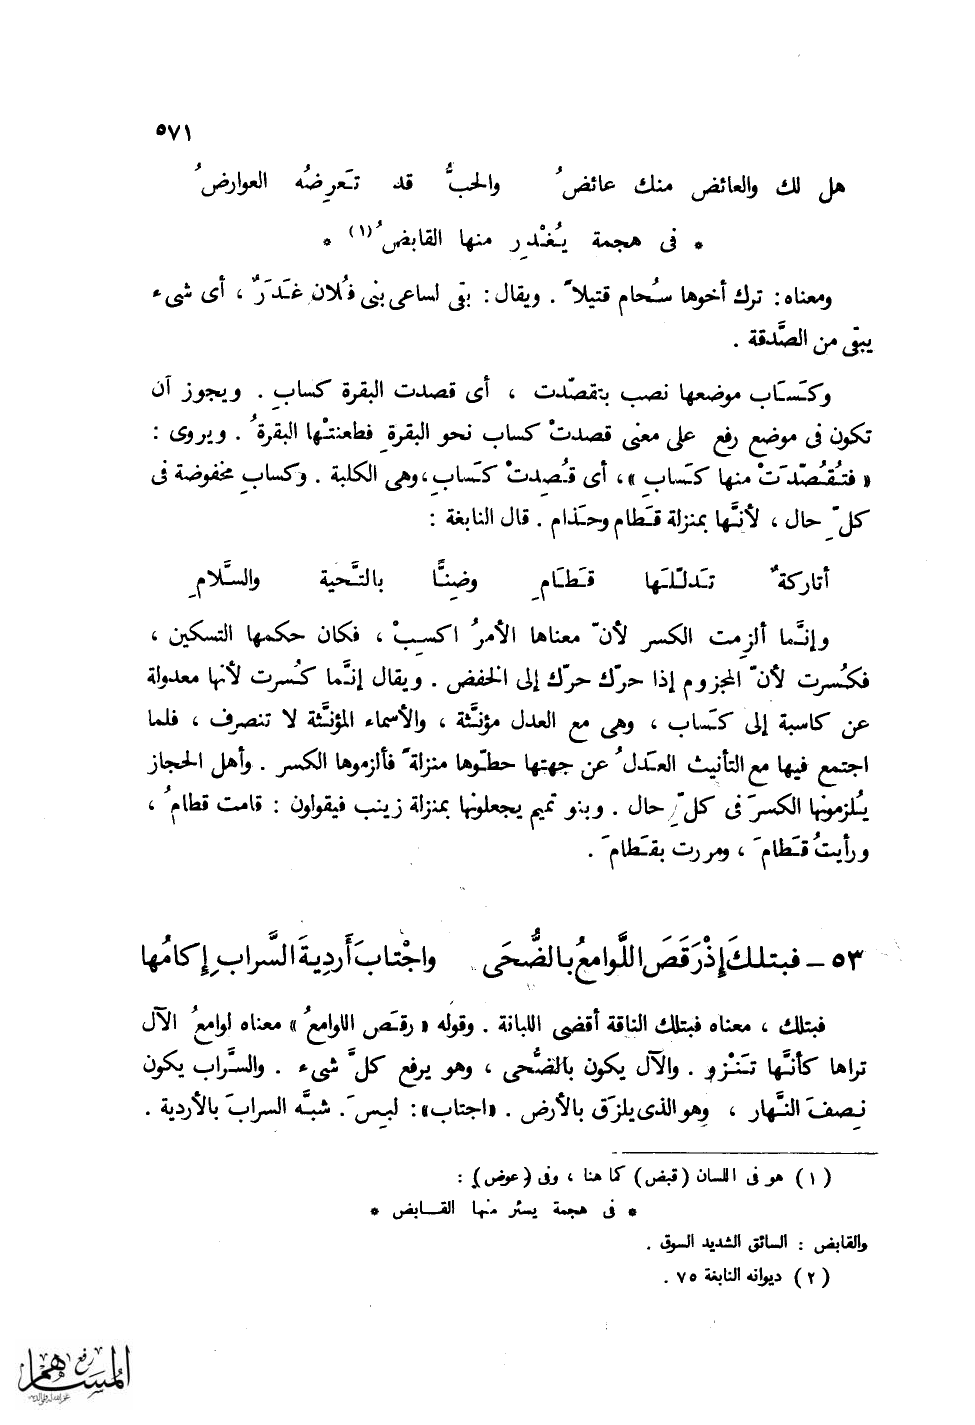 ٥٧١
هل لك والعائض منك عائضُ والحبُّ قد تَعرِضُه العوارضُ
* فى هجمة يُغْدِر منها القابضُ (١) *
ومعناه: ترك أخوها سُحام قتيلاً . ويقال: بقى لساعى بنى فُلان غَدَرٌ ، أى شىء
يبقى من الصَّدقة .
وكَسَاب موضعها نصب بتقصّدت ، أى قصدت البقرة كسابِ . ويجوز أن
تكون فى موضع رفع على معنى قصدتْ كساب نحو البقرةِ فطعنتْها البقرةُ . ويروى :
« فتُقُصّدَتْ منها كَسابِ »، أى قُصِدتْ كَسابِ، وهى الكلبة . وكسابِ مخفوضة فى
كلِّ حال ، لأنَّها بمنزلة قَطام وحَذام . قال النابغة :
أتاركةٌ تَدلّلَها قَطَامِ وضِنًّا بالتَّحية والسَّلامِ
وإنَّما ألزِمت الكسر لأنّ معناها الأمرُ اكسِبْ ، فكان حكمها التسكين ،
فكُسرت لأنّ المجزوم إذا حرّك حرّك إلى الخفض . ويقال إنَّما كُسرت لأنها معدولة
عن كاسبة إلى كَساب ، وهى مع العدل مؤنَّثة ، والأسماء المؤنَّثة لا تنصرف ، فلما
اجتمع فيها مع التأنيث العَدلُ عن جهتها حطّوها منزلةً فألزموها الكسر . وأهل الحجاز
يُلزمونها الكسرَ فى كلِّ حال . وبنو تميم يجعلونها بمنزلة زينب فيقولون : قامت قطامُ ،
ورأيتُ قَطامَ ، ومررت بقَطامَ .
٥٣ – فبتلكَ إذْ رَقَصَ اللَّوامعُ بالضُّحَى واجْتابَ أَردِيةَ السَّرابِ إكامُها
فبتلك ، معناه فبتلك الناقة أقضى اللبانة . وقوله « رقَص اللوامعُ » معناه لوامعُ الآل
تراها كأنَّها تَنْزو . والآل يكون بالضُّحى ، وهو يرفع كلَّ شىء . والسَّراب يكون
نِصفَ النَّهار ، وهو الذى يلزَق بالأرض . «اجتاب»: لبِسَ . شبَّه السرابَ بالأردية .
(١) هو فى اللسان (قبض) كما هنا ، وفى (عوض) :
* فى هجمة يسئر منها القابض *
والقابض : السائق الشديد السوق .
(٢) ديوانه النابغة ٧٥ .